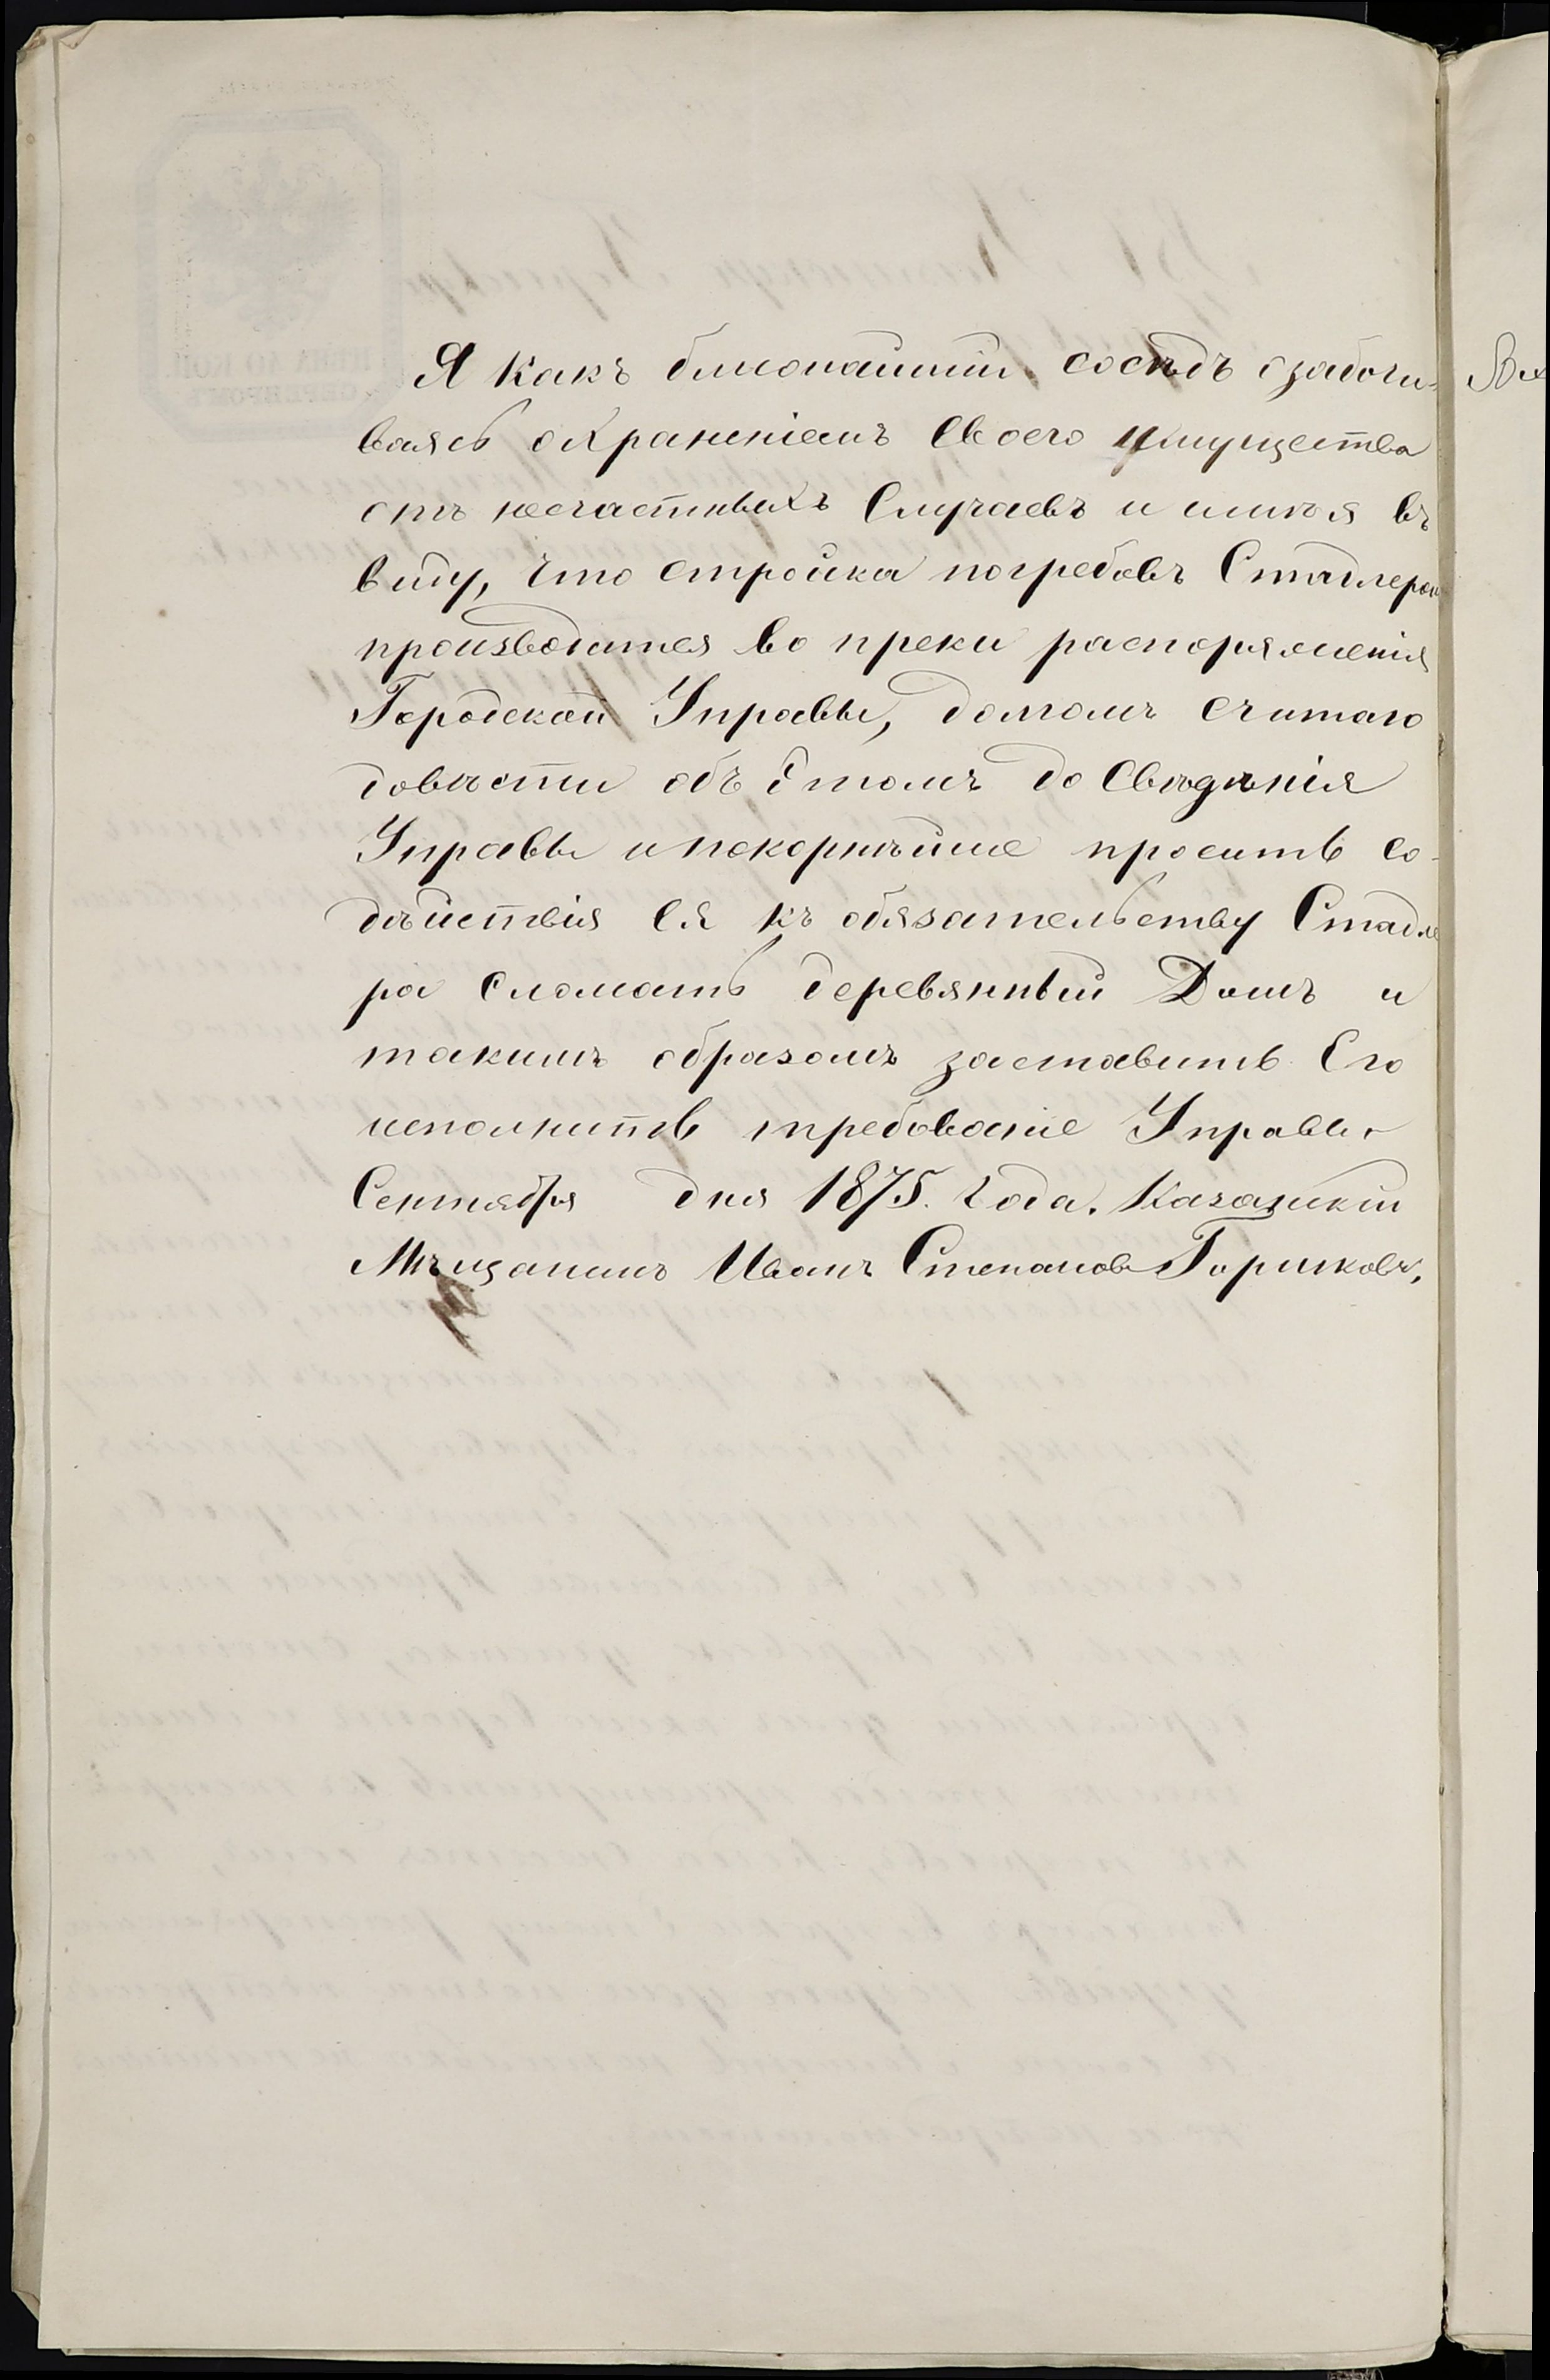 Я какъ ближайшій сосѣдъ озабочи-
ваясь охраненіемъ Своего имущества
отъ несчастныхъ Случаевъ и имѣя въ
виду, что стройка погребовъ Стадлеромъ
производится во преки распоряженія
Городской Управы, долгомъ считаю
довѣсти объ Этомъ до Свѣдѣнія
Управы и покорнѣйше просить со-
дѣйствія Ея къ обязательству Стадле
ра сломать деревянный Домъ и
такимъ образомъ заставить Его
исполнить требованіе Управы
Сентября дня 1875. Года. Казанскій
Мѣщанинъ Иванъ Степановъ Горшковъ,